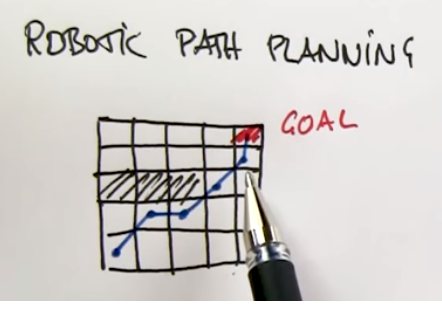 ROBOTIC PATH PLANNING
GOAL